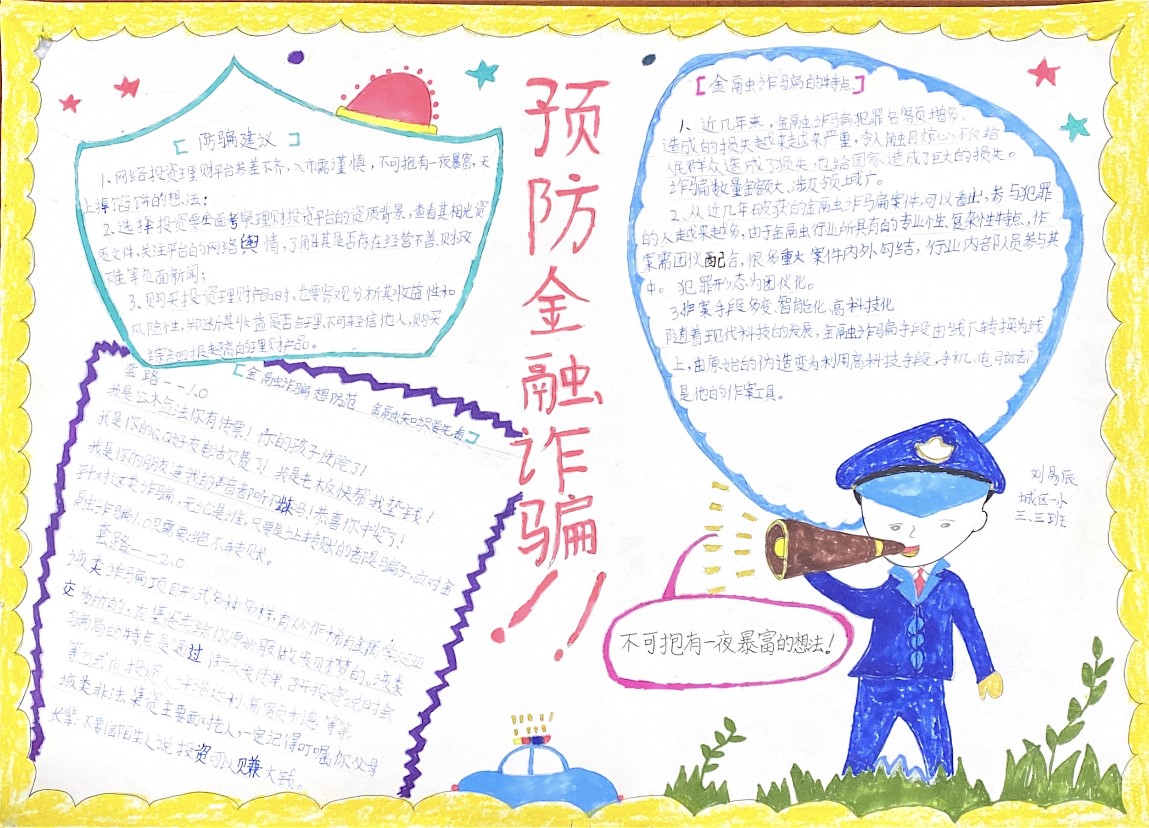 预防金融诈骗!!
[防骗建议]
1、网络投资理财平台参差不齐,入市需谨慎,不可抱有一夜暴富,天
上掉馅饼的想法;
2、选择投资要全面考察理财投资平台的资质背景,查看其相光资
质文件,关注平台的网络舆情,了解其是否存在经营不善、财政
难等负面新闻;
3、购买投资理财产品时,也要客观分析其收益性和
风险性,判断其收益是否合理,不可轻信他人,购买
综合回报超高的理财产品。
[金融诈骗想防范 金融知识要先看]
套路——1.0
我是公木佥法你有传票!你的孩子住院了!
我是你的QQ好友电话欠费了!我是老板快帮我垫钱!
我是你的朋友连我的声音都听不出吗!恭喜你中奖了!
针对这类诈骗,无论是谁,只要是让转账的都是骗子,应对金
融诈骗1.0只需要跑不转账。
套路——2.0
该类诈骗项目形式多种多样,有
骗局的特点是通过
该类非法集资主要面对老人,一定记得叮嘱你父母
长辈:不要信陌生人说投资可以赚大钱。
[金融诈骗的特点]
1、近几年来,金融诈骗犯罪名频增多、
造成的损失越来越来严重,令人触目惊心,不仅给
人民群众造成了损失,也给国家造成了巨大的损失。
诈骗数量金额大、涉及领域广。
2、从近几年破获的金融诈骗案件,可以看出,参与犯罪
的人越来越多,由于金融行业所具有的专业性、复杂性特点,作
案需团伙配合,很多重大案件内外勾结,行业内部队员参与其
中。犯罪形态为团伙化。
3、作案手段多变、智能化、高科技化
随着现代科技的发展,金融诈骗手段由线下转换为线
上,由原始的伪造变为利用高科技手段,手机、电动都
是他的作案工具。
不可抱有一夜暴富的想法!
刘易辰
城区一小
三、三班